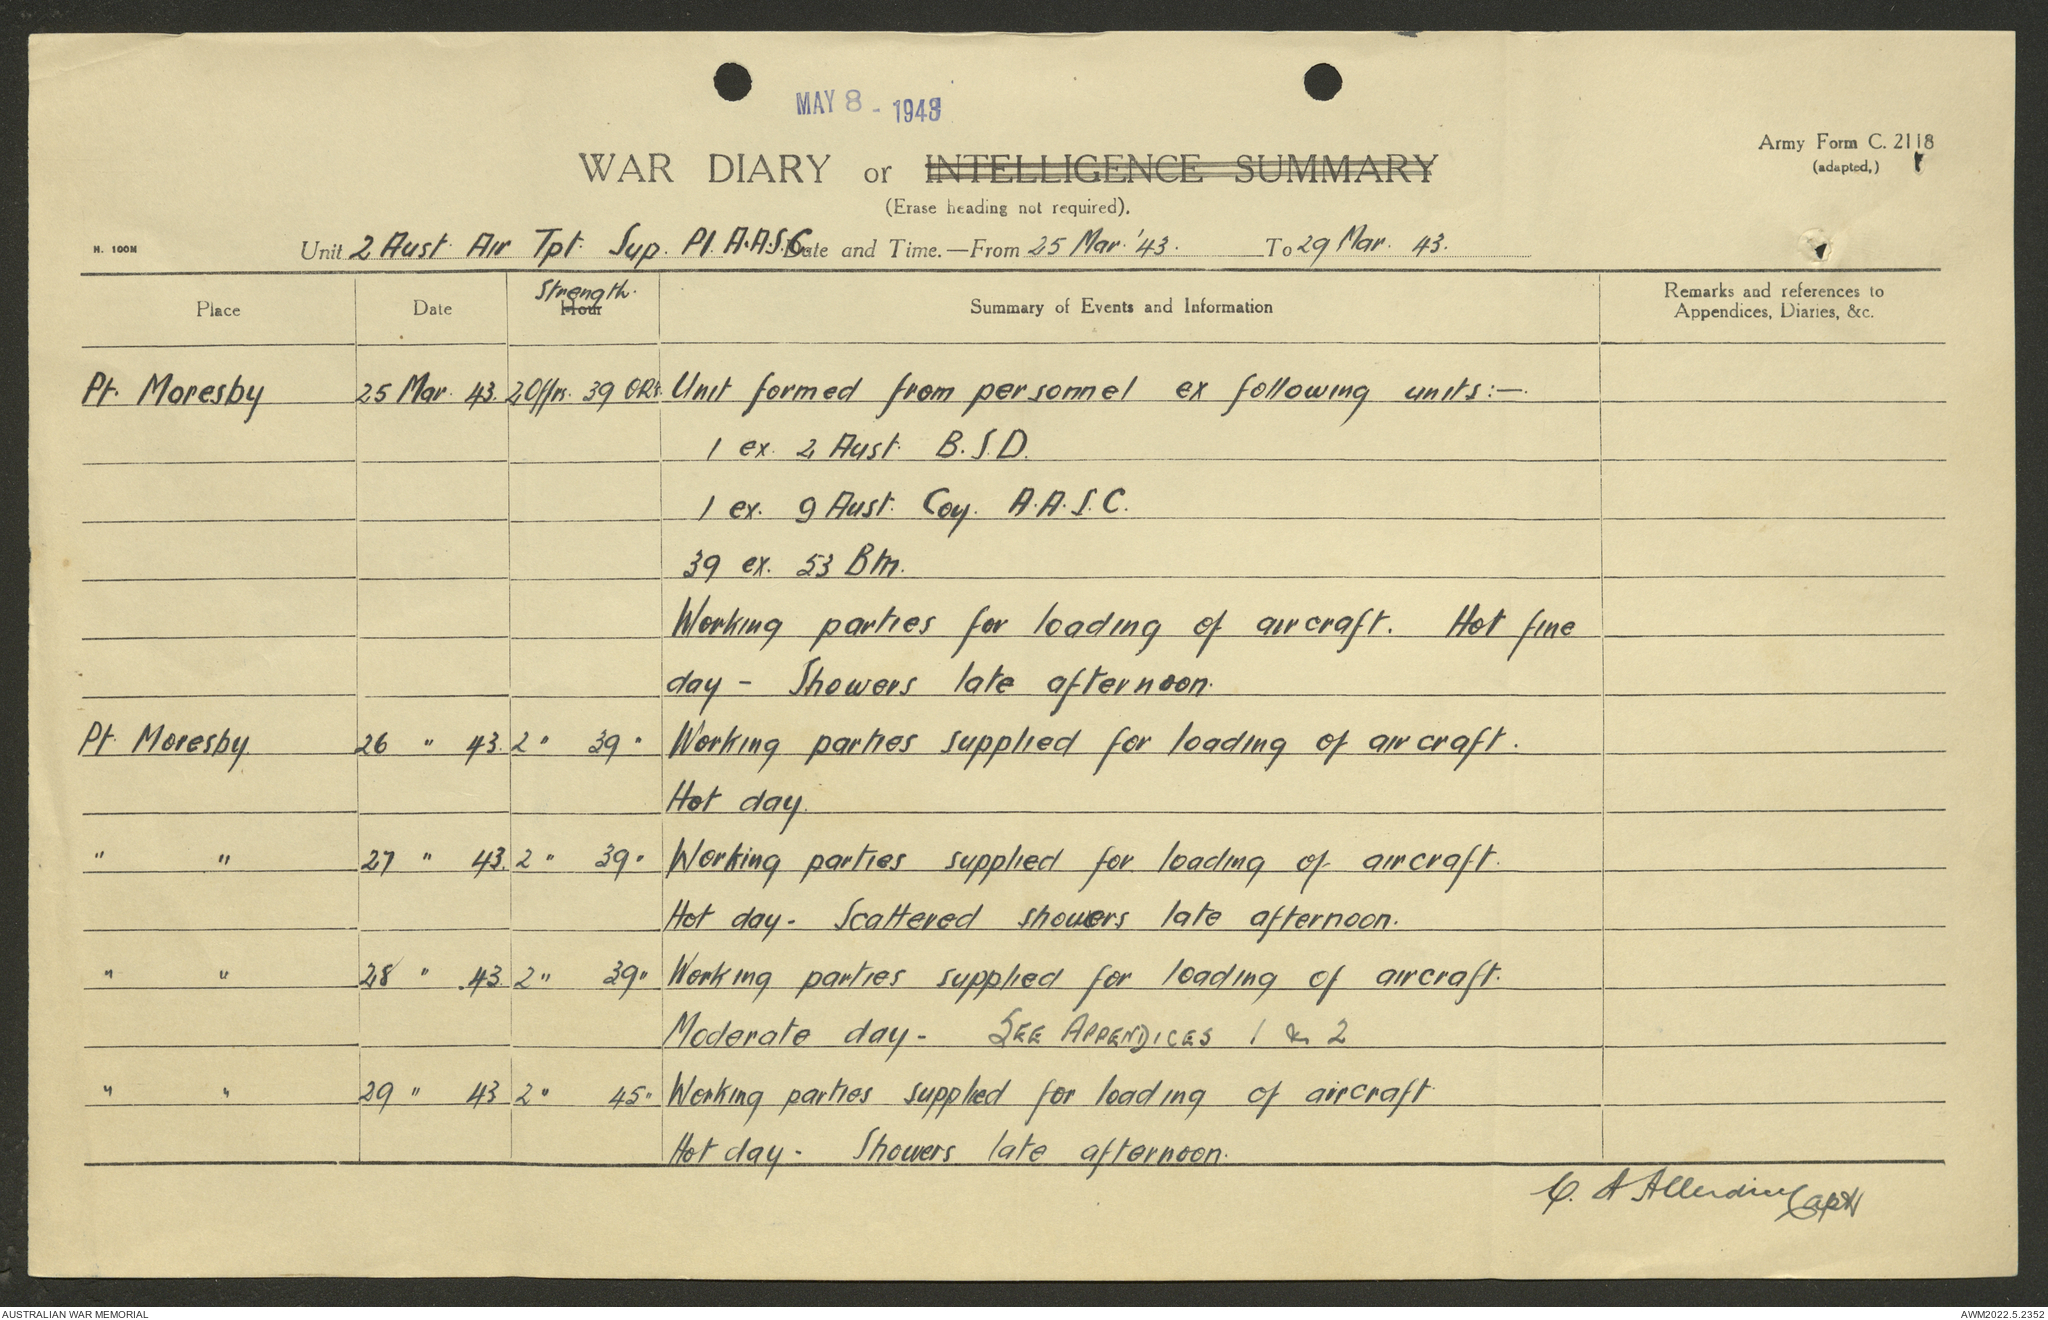 MAY 8 - 1943
Army Form C. 2118
(adapted.)
WAR DIARY or INTELLIGENCE SUMMARY
(Erase heading not required).
H. 100M
Unit 2 Aust. Air Tpt. Sup. Pl. A.A.S.C. Date and Time.—From 25 Mar. '43. To 29 Mar. 43.
Place Date Strength. Hour Summary of Events and Information Remarks and references to
Appendices, Diaries, &c.
Pt. Moresby 25 Mar. 43. 2 Offrs. 39 ORs. Unit formed from personnel ex following units:—
1 ex. 2 Aust. B.S.D.
1 ex. 9 Aust. Coy. A.A.S.C.
39 ex. 53 Btn.
Working parties for loading of aircraft. Hot fine
day - Showers late afternoon.
Pt. Moresby. 26 " 43. 2 " 39 " Working parties supplied for loading of aircraft.
Hot day.
" " 27 " 43. 2 " 39 " Working parties supplied for loading of aircraft.
Hot day - Scattered showers late afternoon.
" " 28 " 43. 2 " 39 " Working parties supplied for loading of aircraft.
Moderate day - SEE APPENDICES 1 & 2
" " 29 " 43 2 " 45 " Working parties supplied for loading of aircraft
Hot day - Showers late afternoon.
C. A Capt
AUSTRALIAN WAR MEMORIAL AWM2022.5.2352